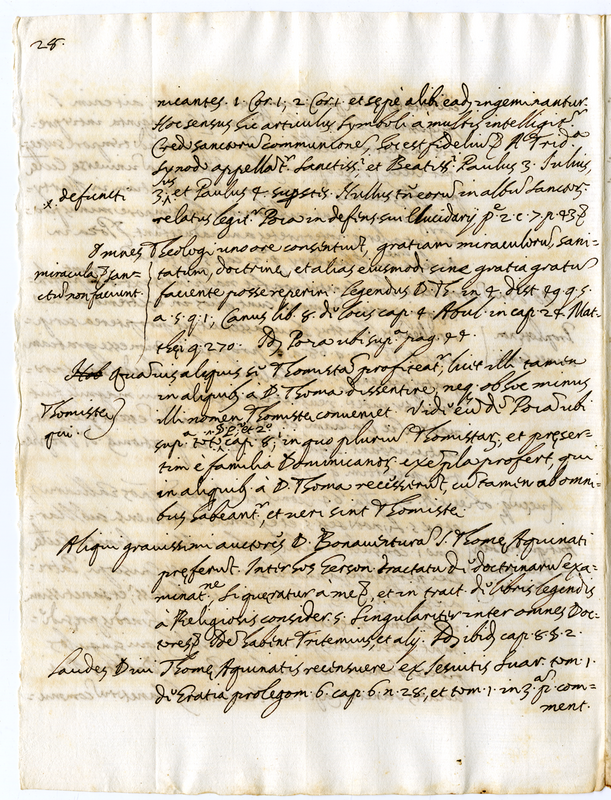 28.
nicantes. 1. Cor. 1, 2 Cor. 1. et sępè alibi ead, ingeminantur.
Hoc sensus hic articulus symboli a multis intelligitr
Cred sanctorũ communionẽ, hoc est fidelium
Synod appellatr. Sanctiss. et Beatiss. Paulus 3. Julius
x defuncti
3, et Paulus 4. Nullus tñ eorũ in albũ Sanctor
relatus legitr. Poza in defens. sui Elucidarij pe 2. c. 7. p. 83
Omnes Theologi uno ore consentiunt, gratiam miraculorũ, sani=
miracula, san-
tatum, doctrinę, et alias eiusmodi sine gratia gratũ
ctũ non faciunt.
faciente posse reperiri. Legendus D. Th. in 4. dist. 49. q. 5.
a. 5. q. 1, Canus lib. 8. de locis cap. 4. Abul. in cap. 24. Mat=
thęi q. 270. Poza ubi supa pag. 84
Quãuis aliquis se Thomistam profiteatr, licet illi tamen
in aliquib a D. Thoma dissentire, neq ob hoc minus
Thomistę
illi nomen Thomistę conueniet. Poza ubi
qui.
supa cap. 8, in quo plurium Thomistar, et preser=
tim è familia Dominicanor exempla profert, qui
in aliquib à D. Thoma recesserunt, cũ tamen ab omni=
bus habeantr, et ueri sint Thomistę.
Aliqui grauissimi auctores D. Bonauenturã S. Thomę Aquinati
pręferunt. Inter hos Gerson tractatu de doctrinarũ exa=
minatne. Si queratur à me, et in tract. de libris legendis
à Religiosis consider. 5. Singulariter inter omnes Doc=
tores. Tritemius, et alij. ibid, cap. 8. §. 2.
Laudes Diui Thomę Aquinatis recensuere ex Iesuitis Suar. tom. 1.
de Gratia prolegom. 6. cap. 6. n. 28, et tom. 1. in 3. p. com=
ment.